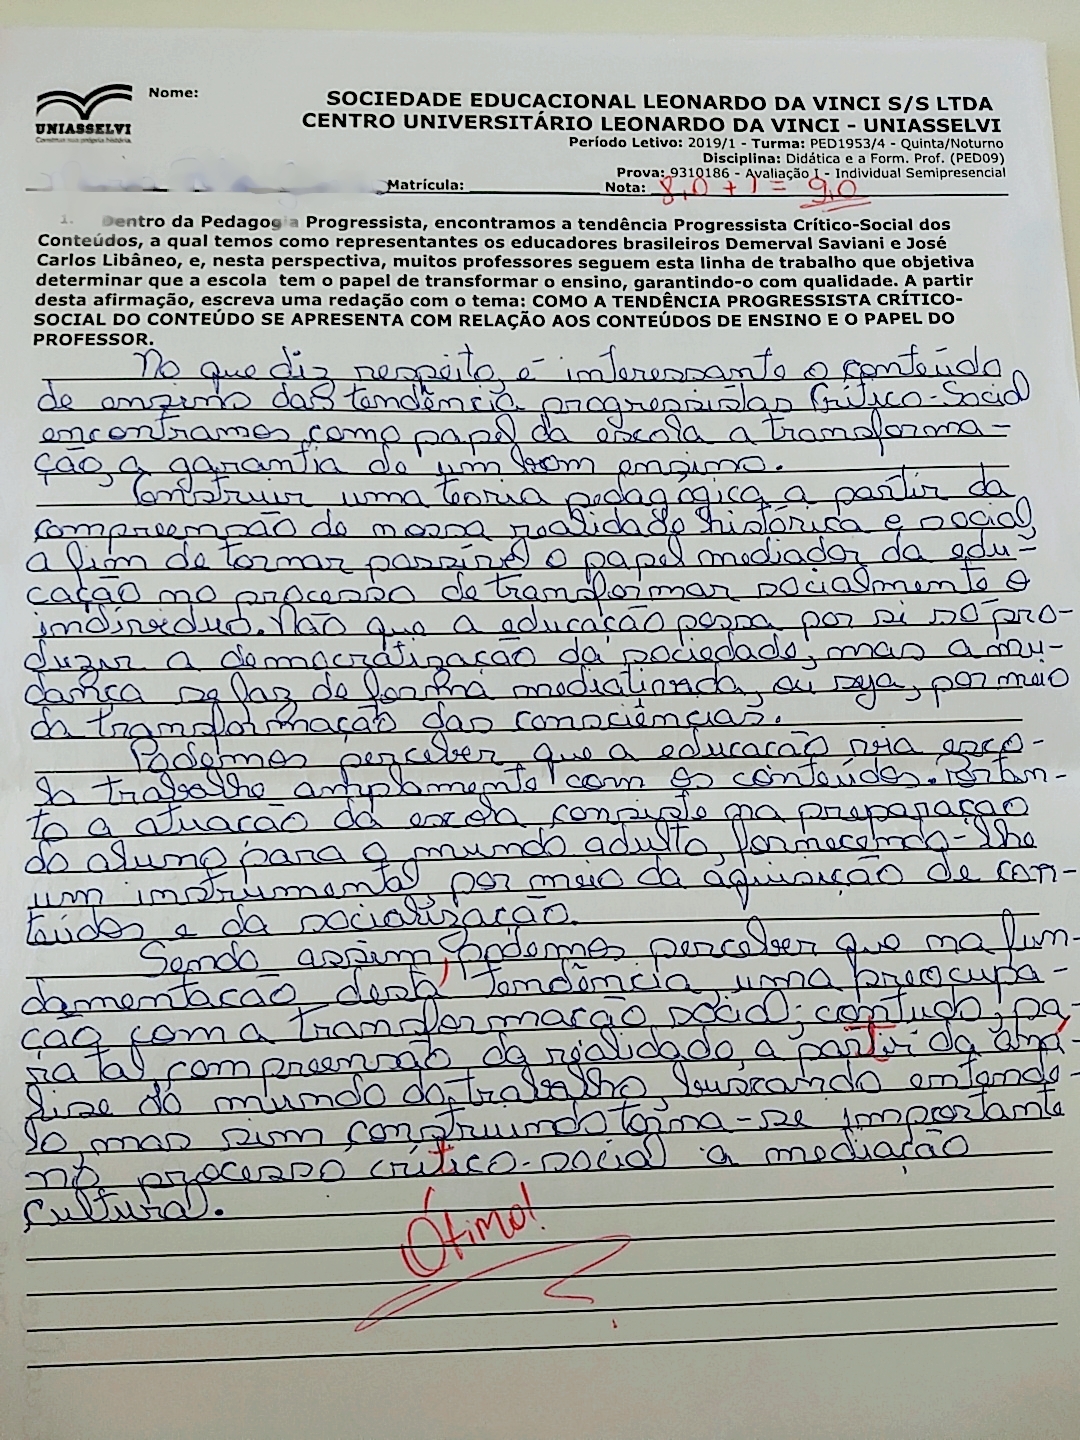 UNIASSELVI
Nome:
SOCIEDADE EDUCACIONAL LEONARDO DA VINCI S/S LTDA
CENTRO UNIVERSITÁRIO LEONARDO DA VINCI - UNIASSELVI
Período Letivo: 2019/1 - Turma: PED1953/4 - Quinta/Noturno
Disciplina: Didática e a Form. Prof. (PED09)
Prova: 9310186 - Avaliação I - Individual Semipresencial
Matrícula: Nota: 8,0 + 1 = 9,0
1. Dentro da Pedagogia Progressista, encontramos a tendência Progressista Crítico-Social dos
Conteúdos, a qual temos como representantes os educadores brasileiros Demerval Saviani e José
Carlos Libâneo, e, nesta perspectiva, muitos professores seguem esta linha de trabalho que objetiva
determinar que a escola tem o papel de transformar o ensino, garantindo-o com qualidade. A partir
desta afirmação, escreva uma redação com o tema: COMO A TENDÊNCIA PROGRESSISTA CRÍTICO-
SOCIAL DO CONTEÚDO SE APRESENTA COM RELAÇÃO AOS CONTEÚDOS DE ENSINO E O PAPEL DO
PROFESSOR.
No que diz respeito, é interessante o conteúdo
de ensino das tendência progressistas Crítico-Social
encontramos como papel da escola a transforma-
ção, a garantia de um bom ensino.
Construir uma teoria pedagógica a partir da
compreensão de nossa realidade histórica e social,
a fim de tornar possível o papel mediador da edu-
cação no processo de transformar socialmente o
indivíduo. Não que a educação possa por si só pro-
duzir a democratização da sociedade, mas a mu-
dança se faz de forma mediatizada, ou seja, por meio
da transformação das consciências.
Podemos perceber que a educação via esco-
la trabalha amplamente com os conteúdos. Portan-
to a atuação da escola consiste na preparação
do aluno para o mundo adulto, fornecendo-lhe
um instrumental, por meio da aquisição de con-
teúdos e da socialização.
Sendo assim, podemos perceber que na fun-
damentação desta tendência, uma preocupa-
ção com a transformação social; contudo, pa-
ra tal compreensão da realidade, a partir da aná
lise do mundo do trabalho, buscando entende-
lo, mas sim construindo torna-se importante
no processo crítico-social a mediação
cultural.
Ótimo!